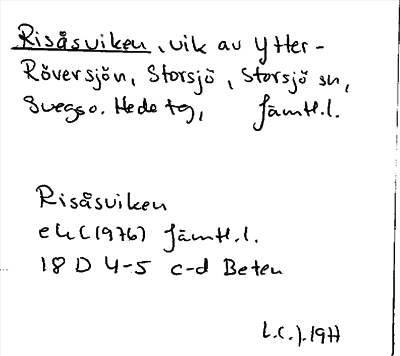 Risåsviken, vik av Ytter-
Röversjön, Storsjö, Storsjö sn,
Svegs o. Hede tg, Jämtl.l.
Risåsviken
ek (1976) Jämtl.l.
18 D 4-5 c-d Beten